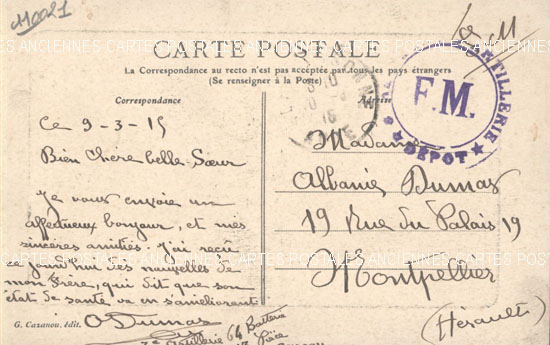 110021
CARTE POSTALE
ANCIENNES CARTES POSTALES ANCIENNES CARTES POSTALES
La Correspondance au recto n'est pas acceptée par tous les pays étrangers
(Se renseigner à la Poste)
Correspondance
Adresse
ARTILLERIE
F.M.
DÉPOT
Ce 9-3-15
Bien Chere belle-Sœur
Je vous envoie un
affectueux bonjour, et mes
sincères amitiés. J'ai reçu
ce jourd'hui des nouvelles de
mon frère, qui dit que son
état de santé va en s'améliorant
O Dumas
Artillerie 64 Batterie
Pièce
G. Cazanou, édit.
Madame
Albanie Dumas
19 Rue du Palais 19
Montpellier
(Hérault)